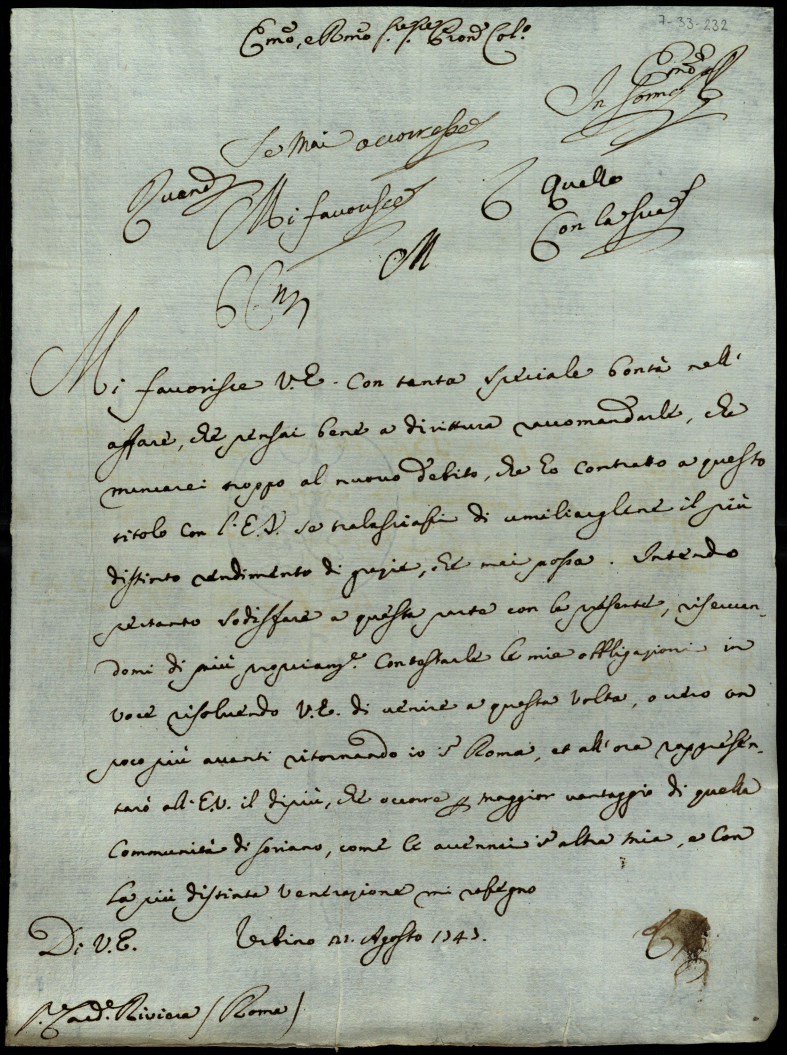 7-33-232
Emo, e Rmo Sre. Sre. Pron Col.o
In somma
Se Mai occorresse
Quand Mi favorisce Quello
Con la sua
M
Mi favorisce V.E. con tanta speciale bontà nell'
affare, che pensai bene a dirittura raccomandarle, che
mancarei troppo al nuovo debito, che ho contratto a questo
titolo con l'E.V. se tralasciassi di umiliarglene il più
distinto rendimento di grazie, che mai possa. Intendo
pertanto sodisfare a questa parte con la presente, riservan-
domi di più propriam.e contestarle le mie obbligazioni in
voce risolvendo V.E. di venire a questa volta, o vero un
poco più avanti ritornando io in Roma, et all'ora rappresen-
tarò all'E.V. il dipiù, che occorre per maggior vantaggio di quella
Communità di Soriano, come le accennai in altra mia, e con
la più distinta venerazione mi rassegno
Di V.E. Urbino Agosto 1743.
S.r Card. Riviera (Roma)